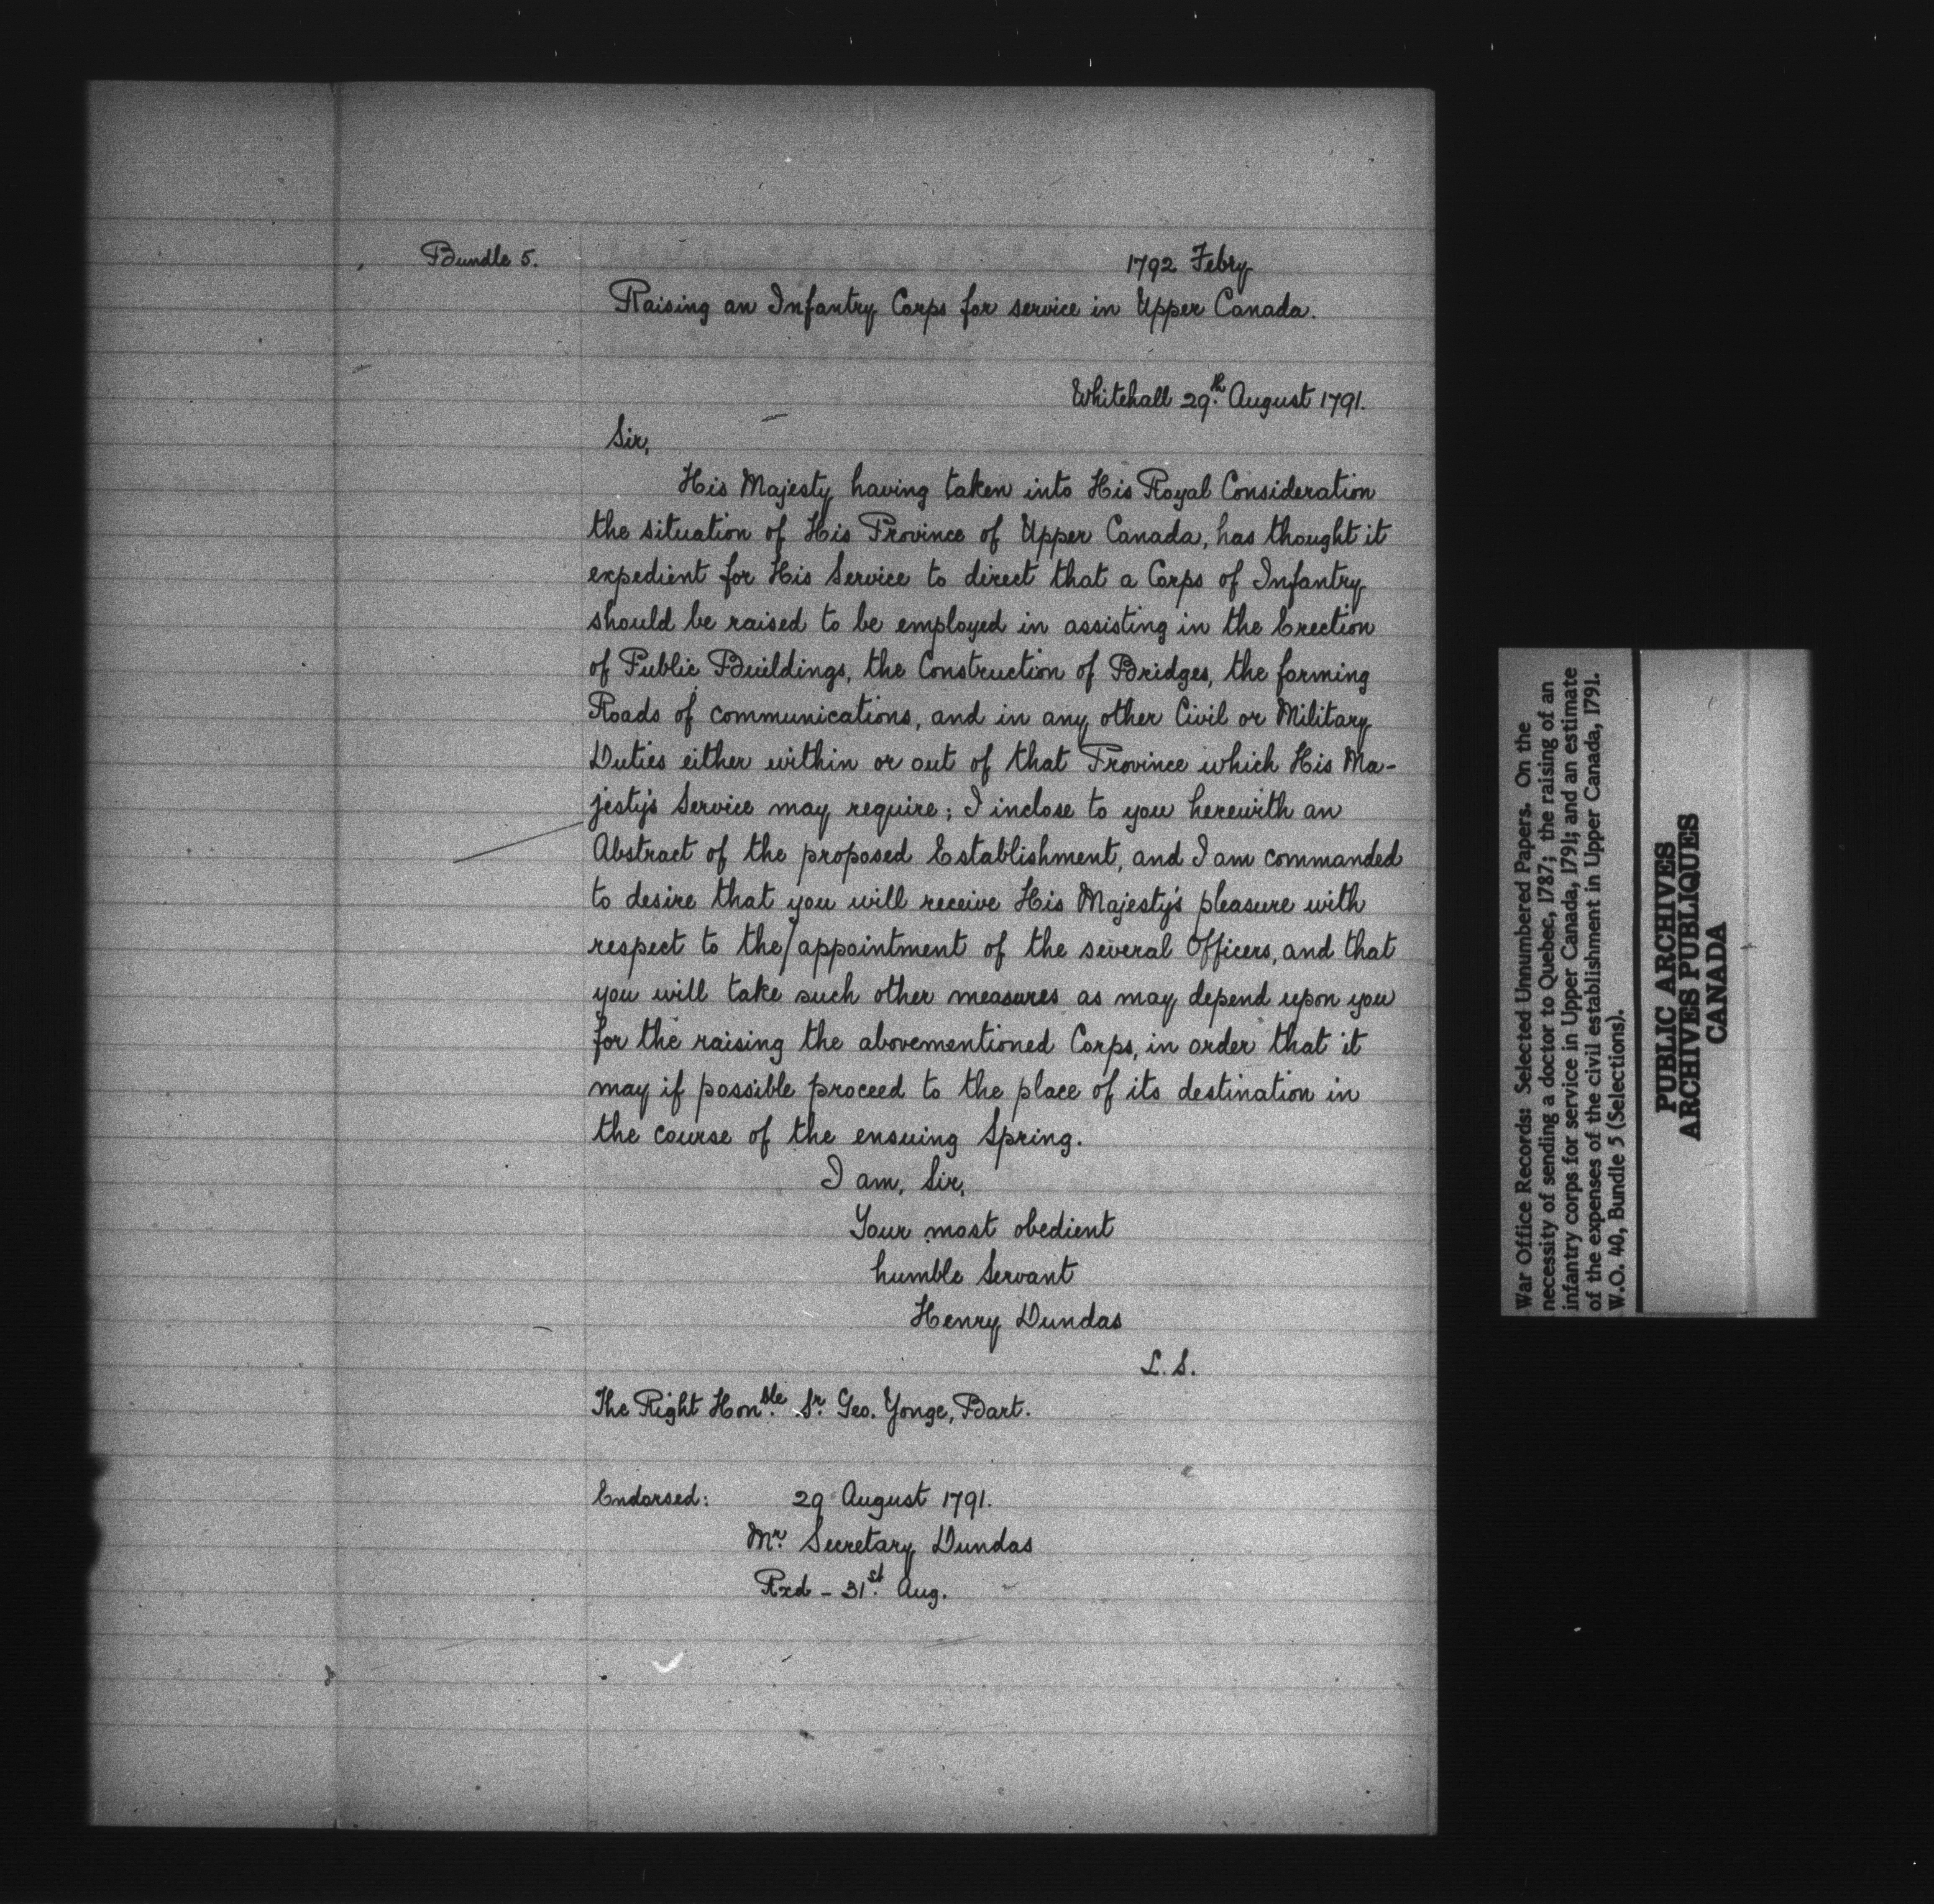 Bundle 5.
1792 Febry
Raising an Infantry Corps for service in Upper Canada.
Whitehall 29.th August 1791.
Sir,
His Majesty having taken into His Royal Consideration
the situation of His Province of Upper Canada, has thought it
expedient for His Service to direct that a Corps of Infantry
should be raised to be employed in assisting in the Erection
of Public Buildings, the Construction of Bridges, the forming
Roads of communications, and in any other Civil or Military
Duties either within or out of that Province which His Ma-
jesty's Service may require; I inclose to you herewith an
Abstract of the proposed Establishment, and I am commanded
to desire that you will receive His Majesty's pleasure with
respect to the/appointment of the several Officers, and that
you will take such other measures as may depend upon you
for the raising the abovementioned Corps, in order that it
may if possible proceed to the place of its destination in
the course of the ensuing Spring.
I am, Sir,
Your most obedient
humble Servant
Henry Dundas
L. S.
The Right Hon.ble Sr. Geo. Yonge, Bart.
Endorsed: 29 August 1791.
Mr. Secretary Dundas
Rxd - 31.st Aug.
War Office Records: Selected Unnumbered Papers. On the
necessity of sending a doctor to Quebec, 1787; the raising of an
infantry corps for service in Upper Canada, 1791; and an estimate
of the expenses of the civil establishment in Upper Canada, 1791.
W.O. 40, Bundle 5 (Selections).
PUBLIC ARCHIVES
ARCHIVES PUBLIQUES
CANADA